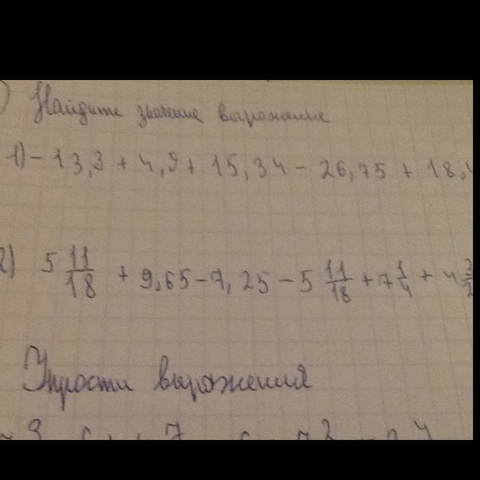 ) Найдите значение выражение
1) - 13,3 + 4,9 + 15,34 - 26,75 + 18,4
2) 5 11/18 + 9,65 - 7,25 - 5 11/18 + 7 1/4 + 4
Упрости выражения